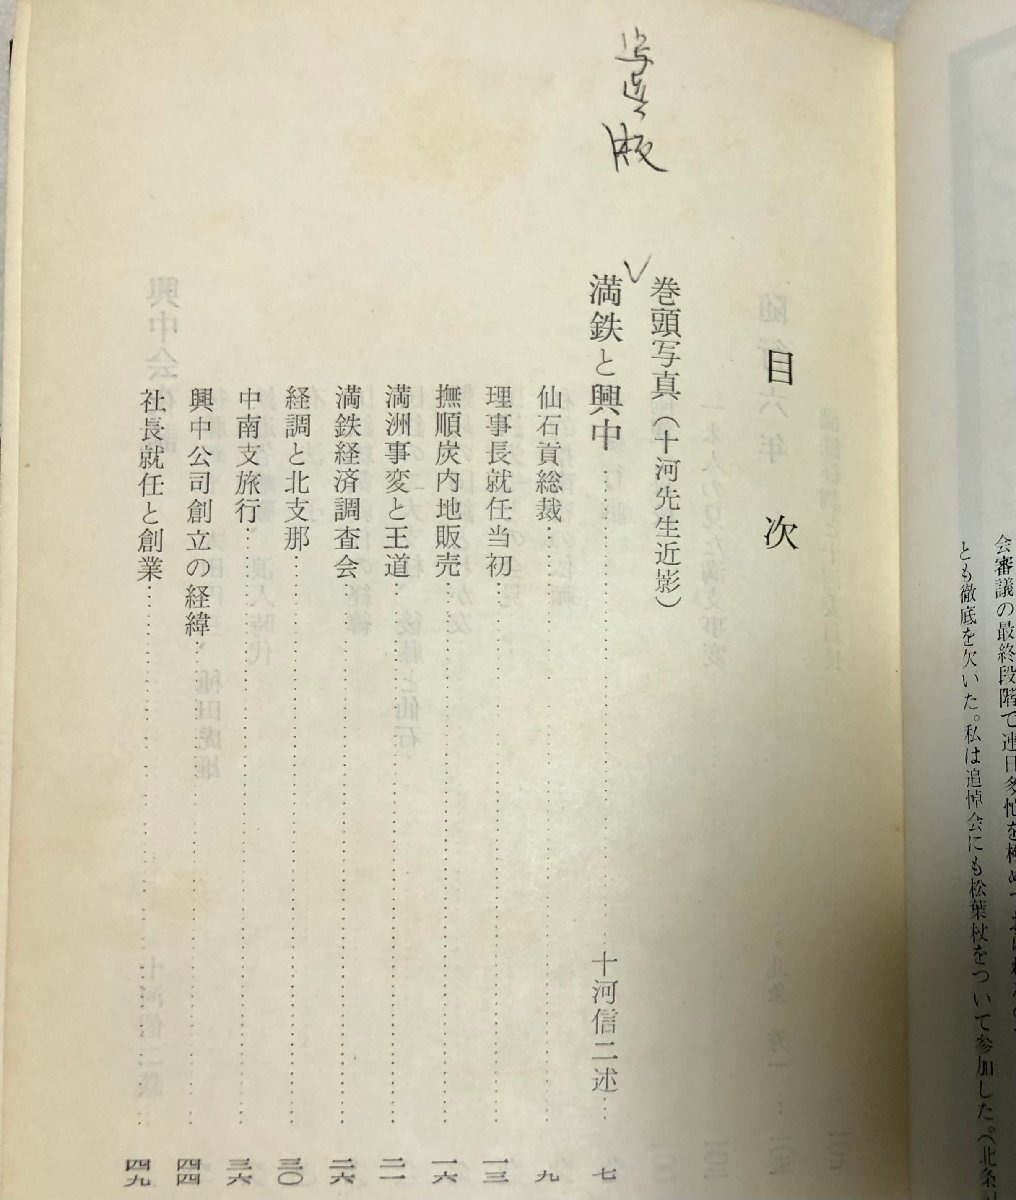 会審議の最終段階で連日多忙を極めて
とも徹底を欠いた。私は追悼会にも松葉杖をついて参加した。(北条
目次
写真版
巻頭写真(十河先生近影)
満鉄と興中……十河信二述…七
仙石貢総裁……九
理事長就任当初……一三
撫順炭内地販売……一六
満洲事変と王道……二一
満鉄経済調査会……二六
経調と北支那……三〇
中南支旅行……三六
興中公司創立の経緯……四四
社長就任と創業……四九